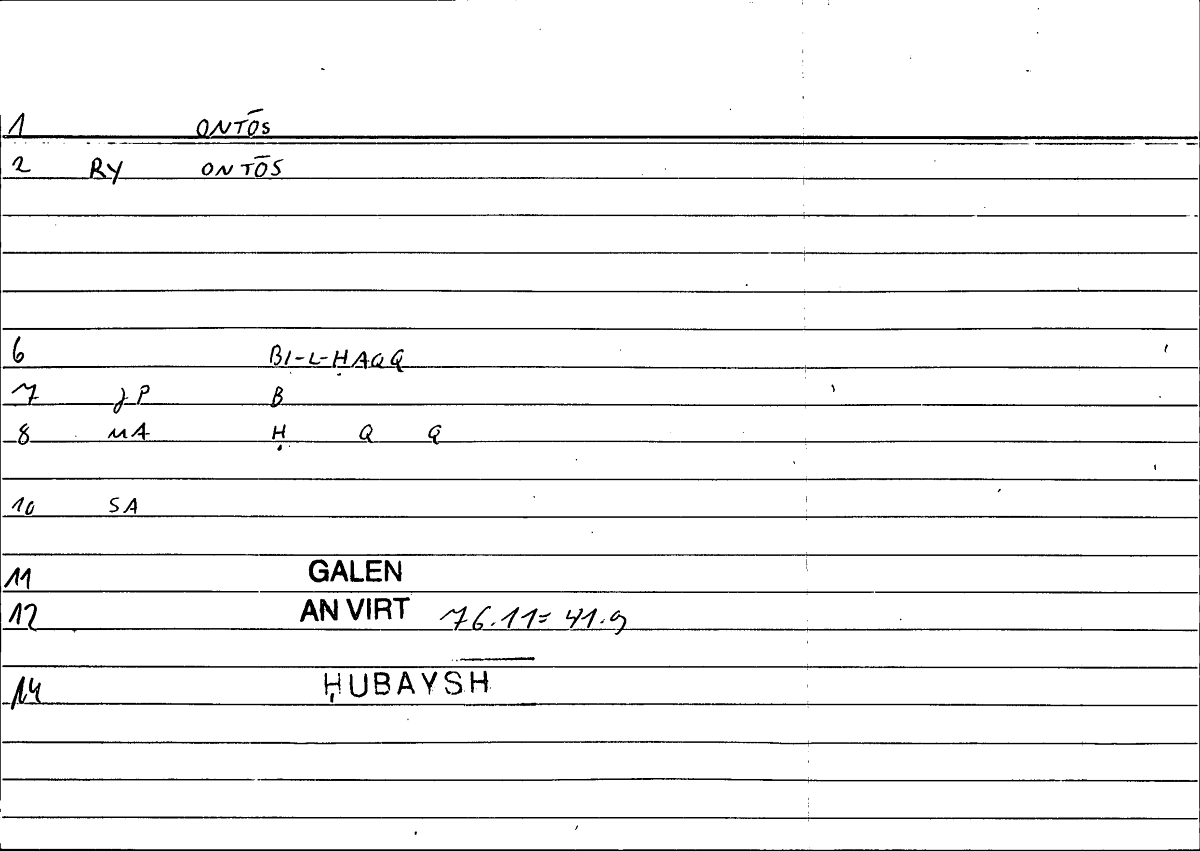 1 ONTŌS
2 RY ONTŌS
6 BI-L-ḤAQQ
7 JP B
8 MA Ḥ Q Q
10 SA
11 GALEN
12 AN VIRT 76.11= 41.9
14 ḤUBAYSH